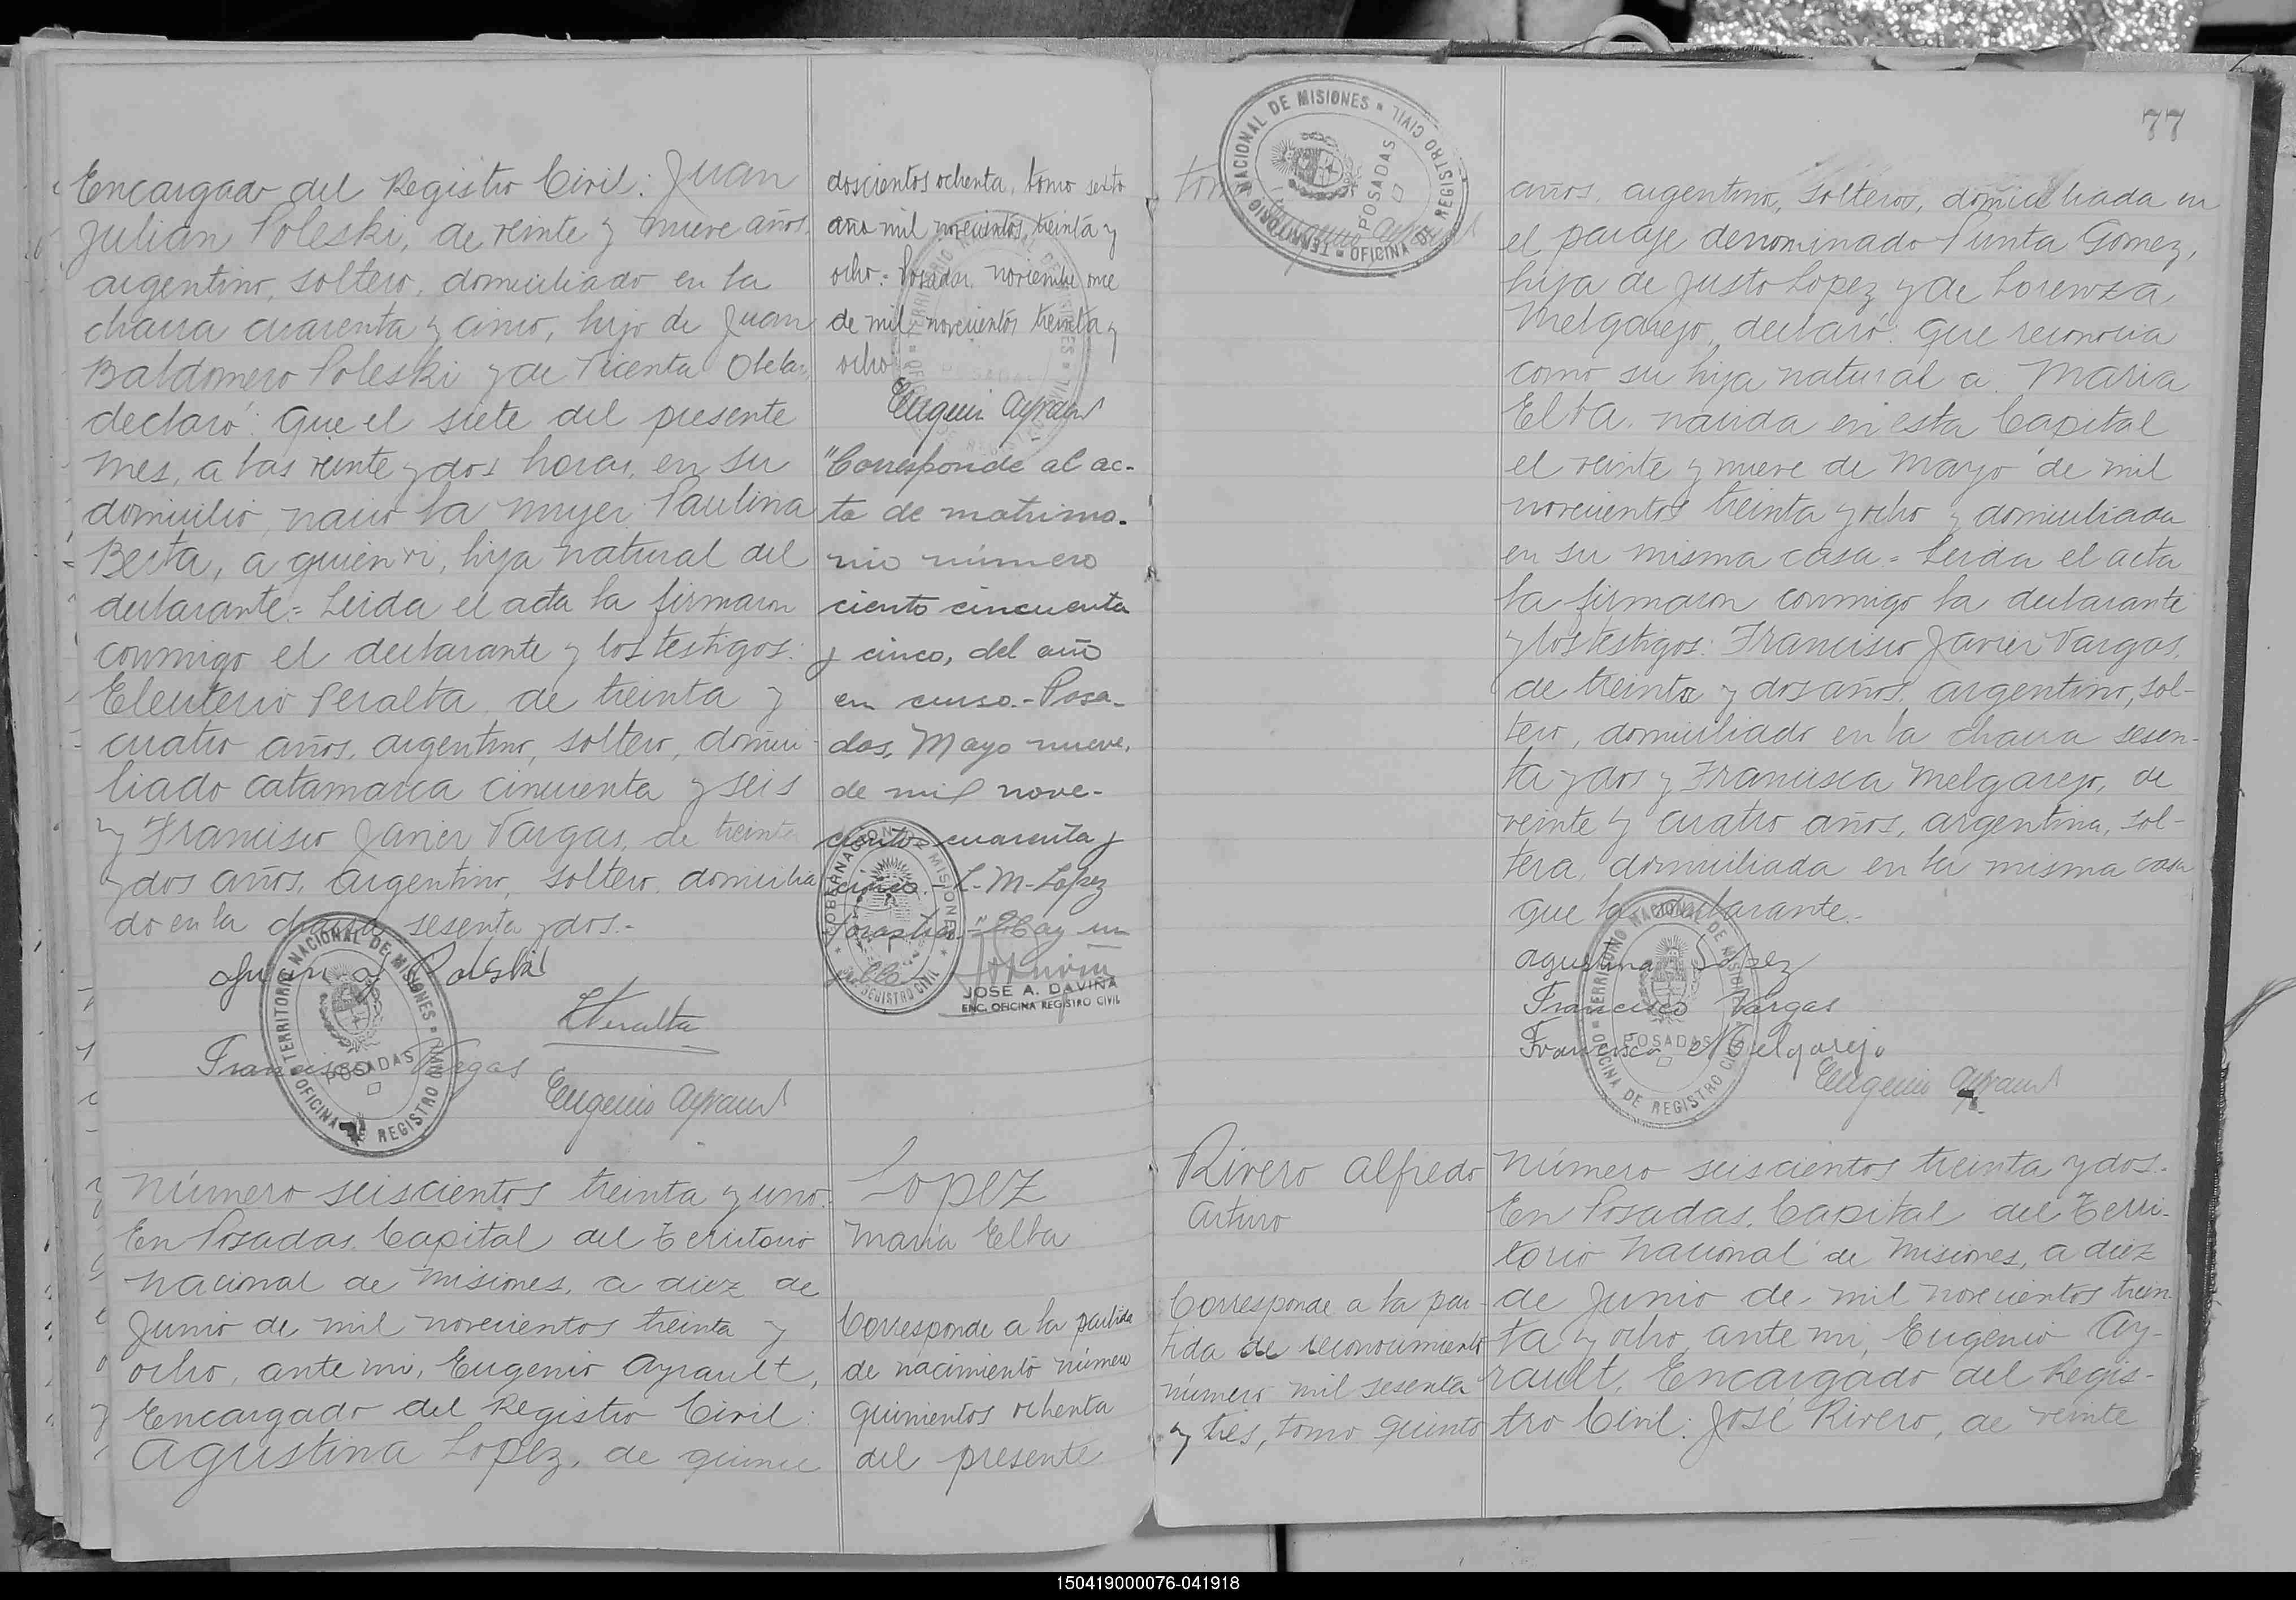 Encargado del Registro Civil: Juan
Julian Poleski, de veinte y nueve años,
argentino, soltero, domiciliado en la
chacra cuarenta y cinco, hijo de Juan
Baldomero Poleski y de Vicenta
declaró: Que el siete del presente
mes, a las veinte y dos horas, en su
domicilio, nació la mujer Paulina
Berta, a quien vi, hija natural del
declarante = Leida el acta la firmaron
conmigo el declarante y los testigos:
Eleuterio Peralta, de treinta y
cuatro años, argentino, soltero, domici-
liado Catamarca cincuenta y seis
y Francisco Javier Vargas, de treinta
y dos años, argentino, soltero, domicilia
do en la chacra sesenta y dos.-
Juan J Poleski
EPeralta
Francisco Vargas
Eugenio Ayrault
TERRITORIO NACIONAL DE MISIONES
POSADAS
OFICINA DE REGISTRO CIVIL
Número seiscientos treinta y uno.
En Posadas, Capital del Territorio
Nacional de Misiones, a diez de
Junio de mil novecientos treinta y
ocho, ante mi, Eugenio Ayrault,
Encargado del Registro Civil:
Agustina Lopez, de quince
doscientos ochenta, tomo sexto
año mil novecientos treinta y
ocho = Posadas, noviembre once
de mil novecientos treinta y
ocho
Eugenio Ayrault
"Corresponde al ac-
ta de matrimo-
nio número
ciento cincuenta
y cinco, del año
en curso.- Posa-
das, Mayo nueve,
de mil nove-
cientos cuarenta y
cinco.- L-M-Lopez
Hay un
GOBERNACION MISIONES
REGISTRO CIVIL
JOSE A. DAVIÑA
ENC. OFICINA REGISTRO CIVIL
Lopez
Maria Elba
Corresponde a la partida
de nacimiento número
quinientos ochenta
del presente
tomo
TERRITORIO NACIONAL DE MISIONES
POSADAS
OFICINA DE REGISTRO CIVIL
Eugenio Ayrault
Rivero Alfredo
Arturo
Corresponde a la par-
tida de reconocimiento
número mil sesenta
y tres, tomo quinto
77
años, argentina, soltera, domiciliada en
el paraje denominado Punta Gomez,
hija de Justo Lopez y de Lorenza
Melgarejo, declaró: Que reconocia
como su hija natural a Maria
Elba, nacida en esta Capital
el veinte y nueve de Mayo de mil
novecientos treinta y ocho y domiciliada
en su misma casa = Leida el acta
la firmaron conmigo la declarante
y los testigos: Francisco Javier Vargas,
de treinta y dos años, argentino, sol-
tero, domiciliado en la chacra sesen-
ta y dos y Francisca Melgarejo, de
veinte y cuatro años, argentina, sol-
tera, domiciliada en la misma casa
que la declarante.-
Agustina Lopez
Francisco Vargas
Francisca Melgarejo
Eugenio Ayrault
TERRITORIO NACIONAL DE MISIONES
POSADAS
OFICINA DE REGISTRO CIVIL
Número seiscientos treinta y dos.
En Posadas, Capital del Terri-
torio Nacional de Misiones, a diez
de Junio de mil novecientos trein
ta y ocho, ante mi, Eugenio Ay-
rault, Encargado del Regis-
tro Civil: José Rivero, de veinte
150419000076-041918